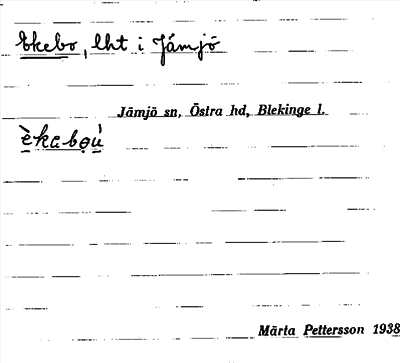 Ekebo, lht i Jämjö
Jämjö sn, Östra hd, Blekinge l.
èkabo̤ú
Märta Pettersson 1938